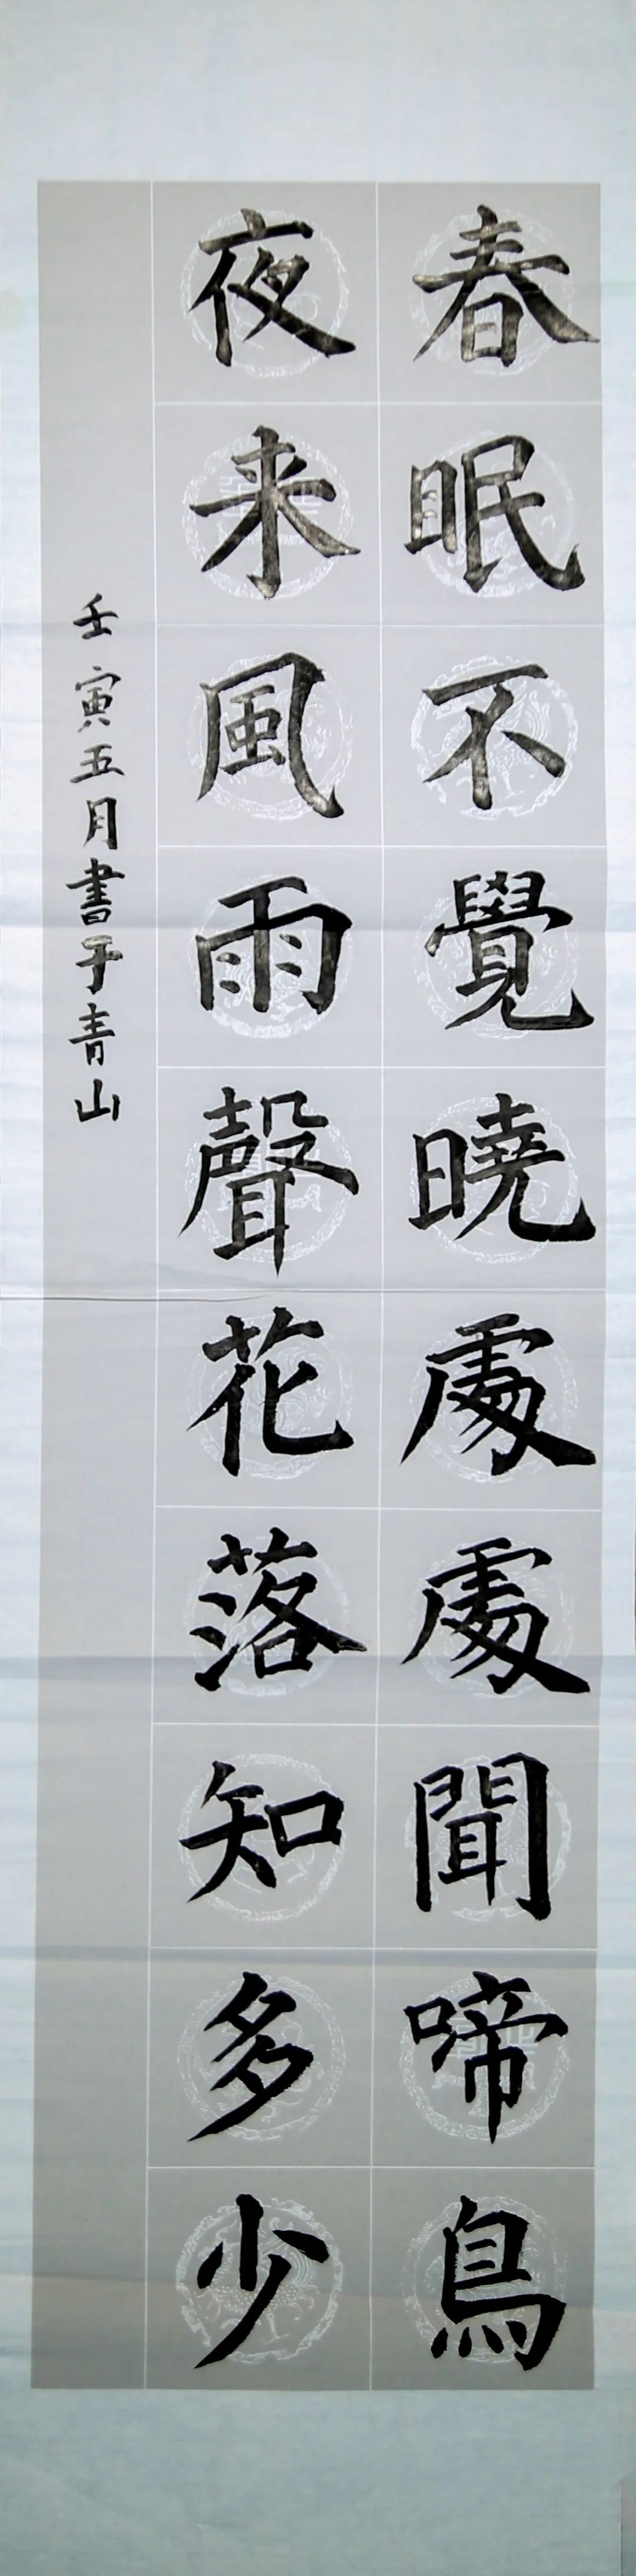 春眠不覺曉處處聞啼鳥
夜来風雨聲花落知多少
壬寅五月書于青山